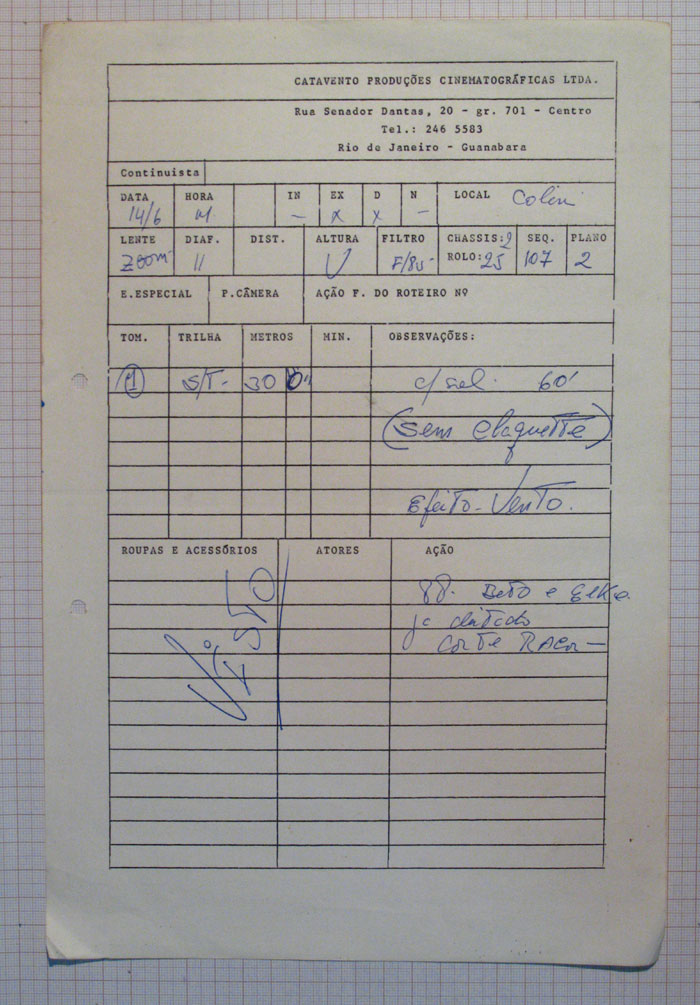 CATAVENTO PRODUÇÕES CINEMATOGRÁFICAS LTDA.
Rua Senador Dantas, 20 - gr. 701 - Centro
Tel.: 246 5583
Rio de Janeiro - Guanabara
Continuista
DATA HORA IN EX D N LOCAL
14/6 M — x x —
LENTE DIAF. DIST. ALTURA FILTRO CHASSIS: 2 SEQ. PLANO
ZOOM 11 F/85 ROLO: 25 107 2
E.ESPECIAL P.CÂMERA AÇÃO F. DO ROTEIRO Nº
TOM. TRILHA METROS MIN. OBSERVAÇÕES:
1 S/T- 30 c/sol. 60'
(Sem claquette)
Efeito-Vento.
ROUPAS E ACESSÓRIOS ATORES AÇÃO
VISTO
Beto e Elke
já deitado
CORTE